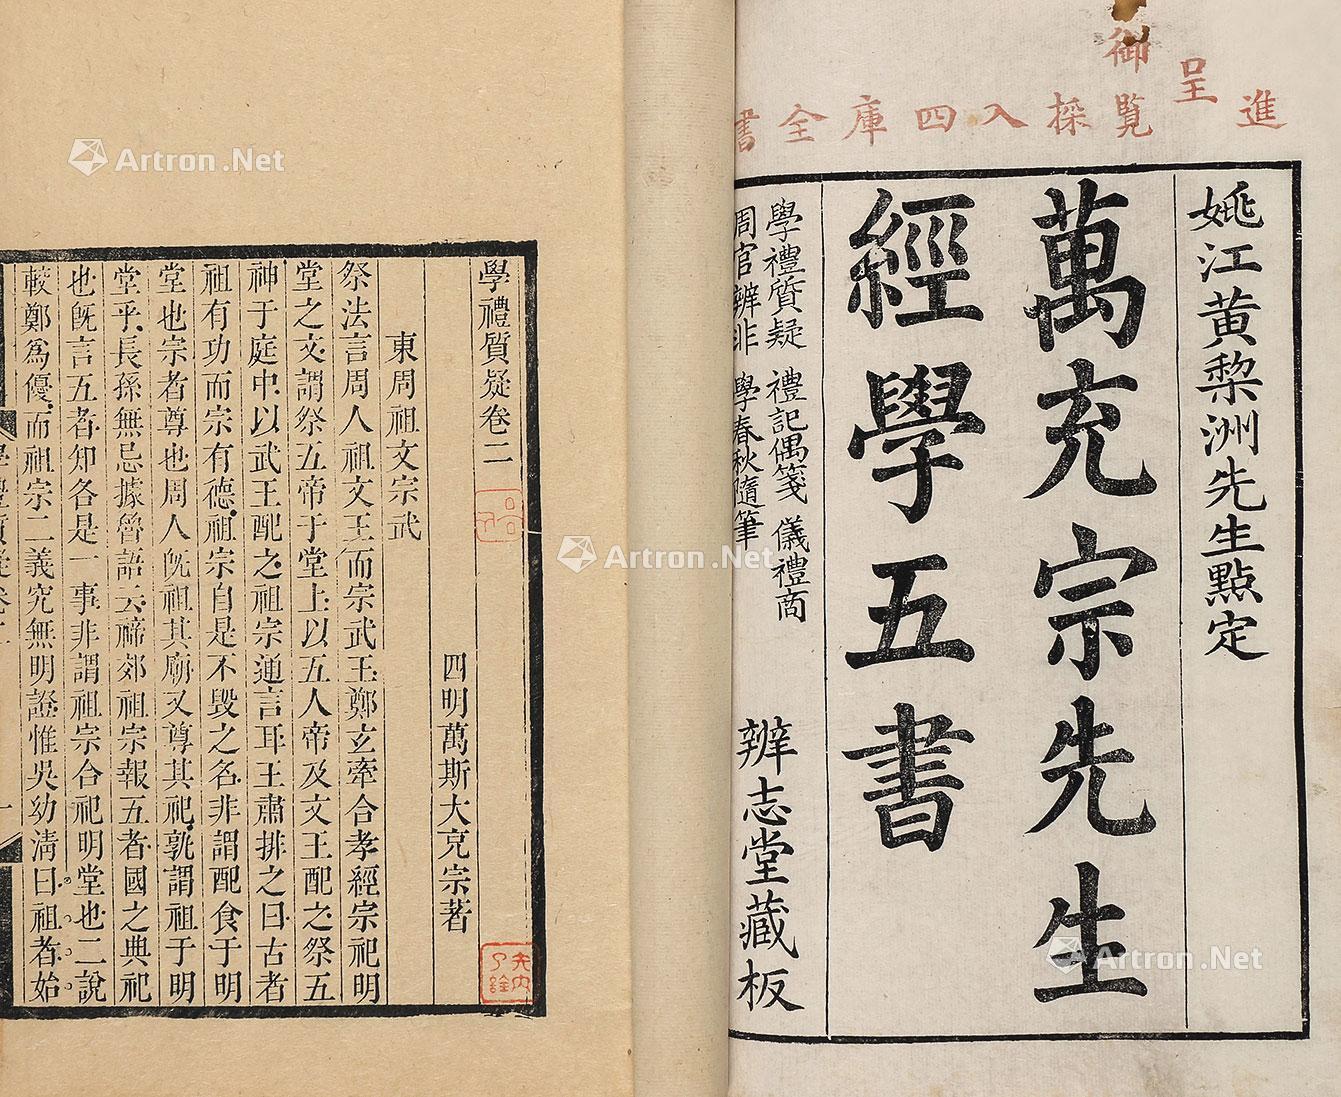 進呈
御覽採入四庫全書
姚江黃梨洲先生點定
萬充宗先生
經學五書
學禮質疑 禮記偶箋 儀禮商
周官辨非 學春秋隨筆
辨志堂藏板
學禮質疑卷二
四明萬斯大充宗著
東周祖文宗武
祭法言周人祖文王而宗武王鄭玄牽合孝經宗祀明
堂之文謂祭五帝于堂上以五人帝及文王配之祭五
神于庭中以武王配之祖宗通言耳王肅排之曰古者
祖有功而宗有德祖宗自是不毀之名非謂配食于明
堂也宗者尊也周人旣祖其廟又尊其祀孰謂祖于明
堂乎長孫無忌據魯語云禘郊祖宗報五者國之典祀
也旣言五者知各是一事非謂祖宗合祀明堂也二說
較鄭爲優而祖宗二義究無明證惟吳幼清曰祖者始
Artron.Net
Artron.Net
Artron.Net